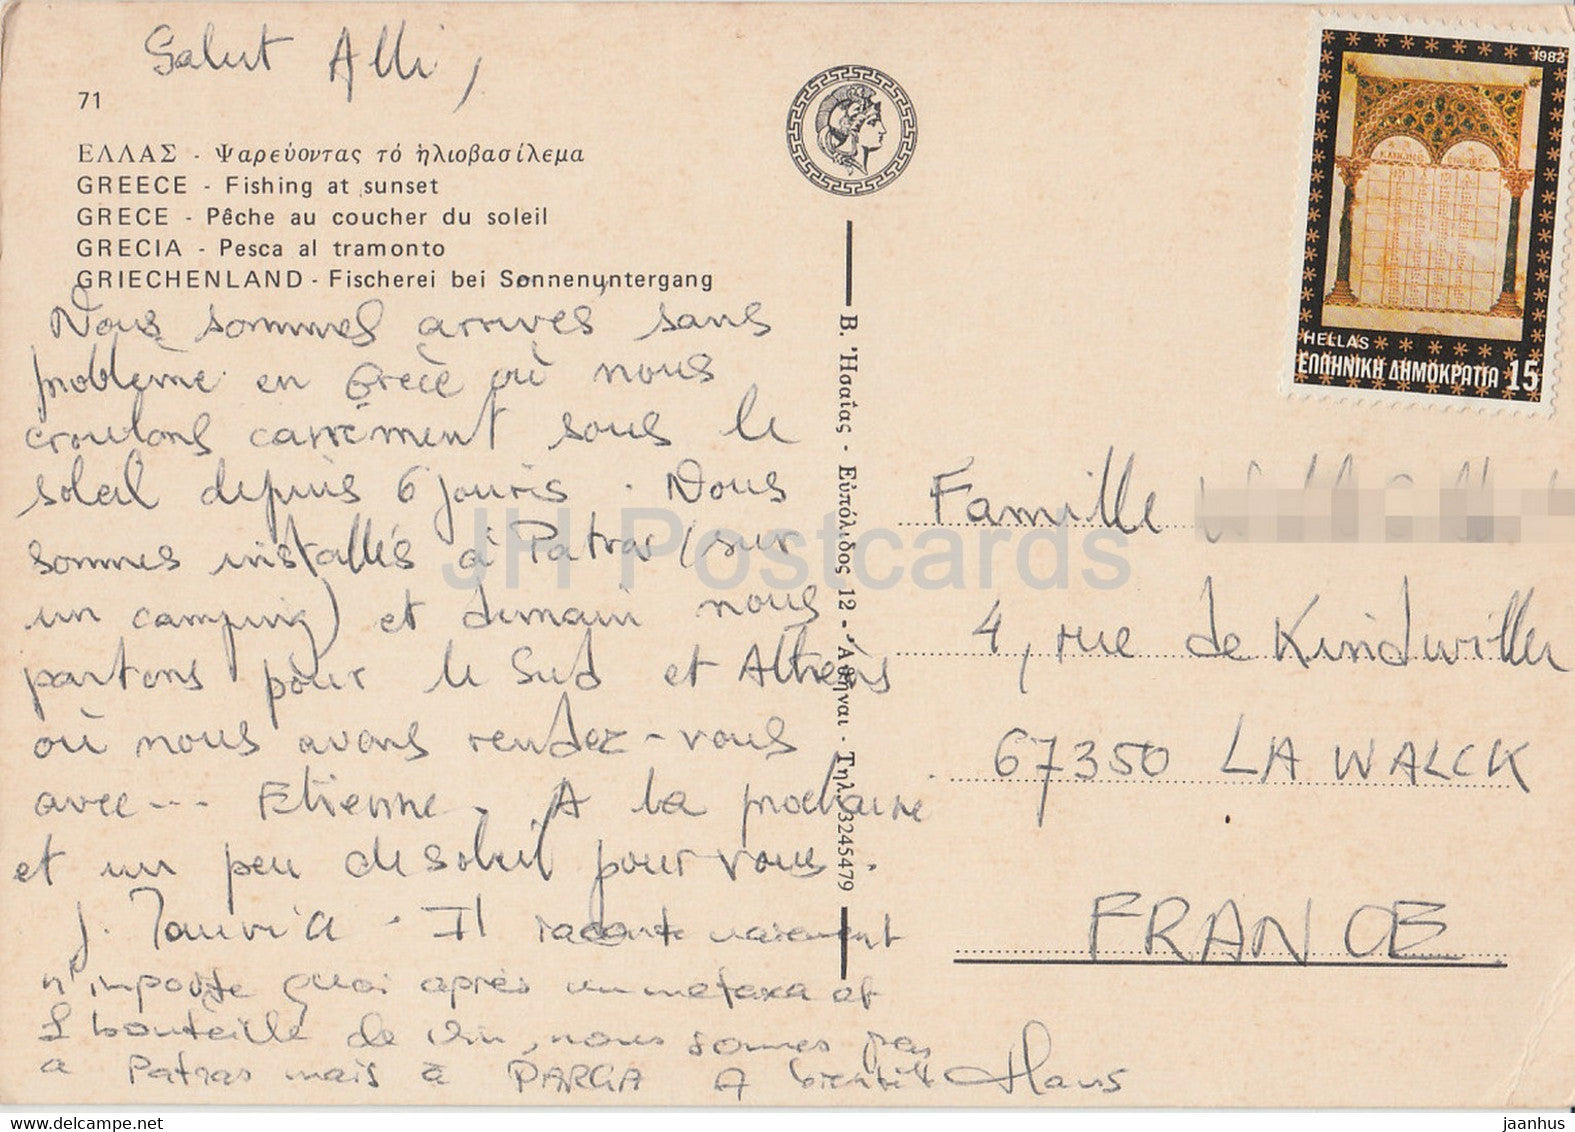 Salut Alli,
71
ΕΛΛΑΣ - Ψαρεύοντας τό ἡλιοβασίλεμα
GREECE - Fishing at sunset
GRECE - Pêche au coucher du soleil
GRECIA - Pesca al tramonto
GRIECHENLAND - Fischerei bei Sonnenuntergang
Nous sommes arrivés sans
problème en Grèce où nous
croulons carrément sous le
soleil depuis 6 jours. Nous
sommes installés à Patras (sur
un camping) et demain nous
partons pour le Sud et Athèns
où nous avons rendez-vous
avec --- Etienne. A la prochaine
et un peu de soleil pour vous.
J. - Il raconte vraiment
n'importe quoi après un metaxa et
bouteille de vin, nous sommes pas
a Patras mais à PARGA A bientôt Hans
Β. Ἡσαΐας - Εὐπόλιδος 12 - Ἀθῆναι - Τηλ. 3245479
1982
HELLAS
ΕΛΛΗΝΙΚΗ ΔΗΜΟΚΡΑΤΙΑ 15
Famille
4, rue de Kindwiller
67350 LA WALCK
FRANCE
JH Postcards
www.delcampe.net
jaanhus